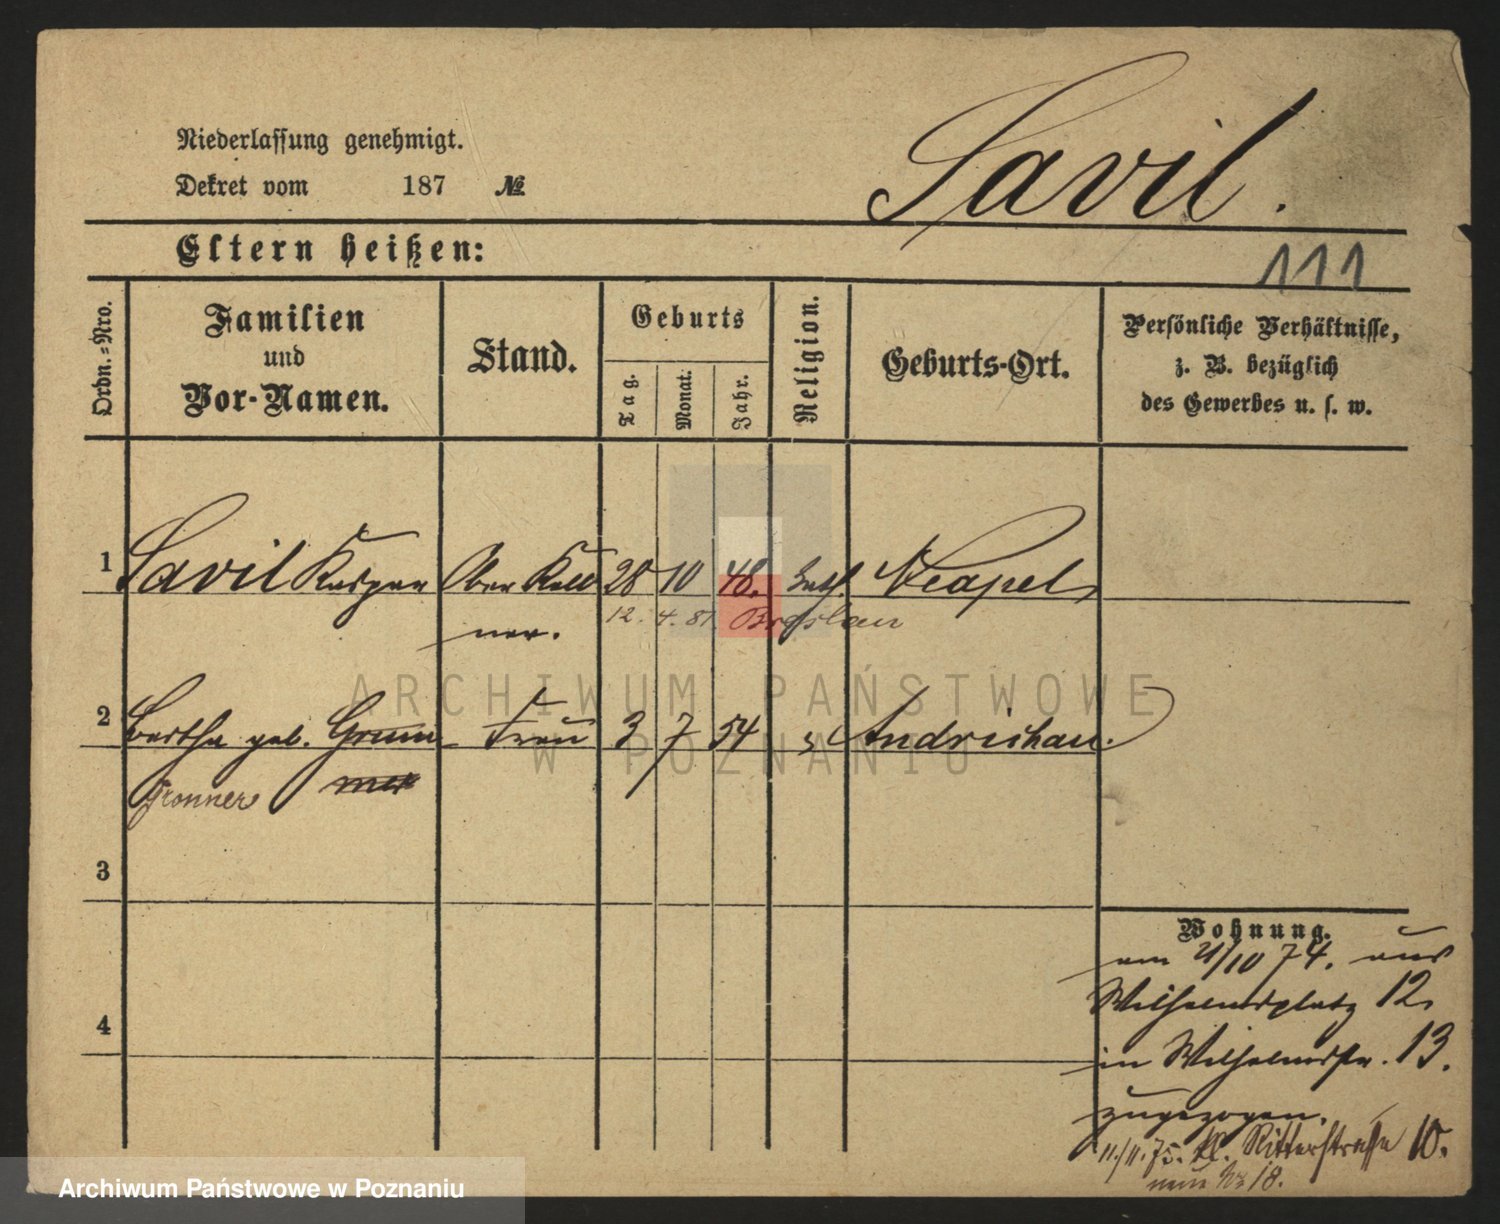 Savil.
Niederlassung genehmigt.
Dekret vom 187 №
Eltern heißen:
111
Ordn.-Nro.
Familien und Vor-Namen.
Stand.
Geburts
Tag.
Monat.
Jahr.
Religion.
Geburts-Ort.
Persönliche Verhältnisse,
z. B. bezüglich
des Gewerbes u. s. w.
1 Savil Kaspar Ober Kell 28 10 48. kath. Neapel
ner. 12. 4. 81. Breslau
2 Bertha geb. Grum Frau 3 7 54 " Andrichau.
Gronner mer
3
4
Wohnung.
am 21/10 74. aus
Wilhelmsplatz 12.
in Wilhelmstr. 13.
zugezogen.
11./11. 75. kl. Ritterstraße 10.
neue № 18.
ARCHIWUM PAŃSTWOWE
W POZNANIU
Archiwum Państwowe w Poznaniu